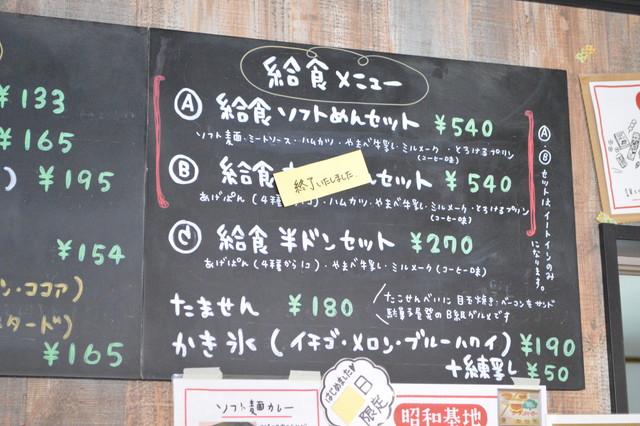 ¥133
¥165
) ¥195
¥154
ン・ココア)
タード)
¥165
給食メニュー
Ⓐ 給食ソフトめんセット ¥540
ソフト麺・ミートソース・ハムカツ・やまべ牛乳・ミルメーク・とろけるプリン
(コーヒー味)
Ⓑ 給食 んセット ¥540
終了いたしました。
あげぱん(4種 コ)・ハムカツ・やまべ牛乳・ミルメーク・とろけるプリン
(コーヒー味)
Ⓒ 給食半ドンセット ¥270
あげぱん(4種から1コ)・やまべ牛乳・ミルメーク(コーヒー味)
Ⓐ・Ⓑセットはイートインのみ
になります。
たません ¥180
たこせんべいに目玉焼き・ベーコンをサンド
駄菓子屋発のB級グルメです
かき氷(イチゴ・メロン・ブルーハワイ) ¥190
+練乳 ¥50
ソフト麺カレー
はじめました
日
限定
昭和基地